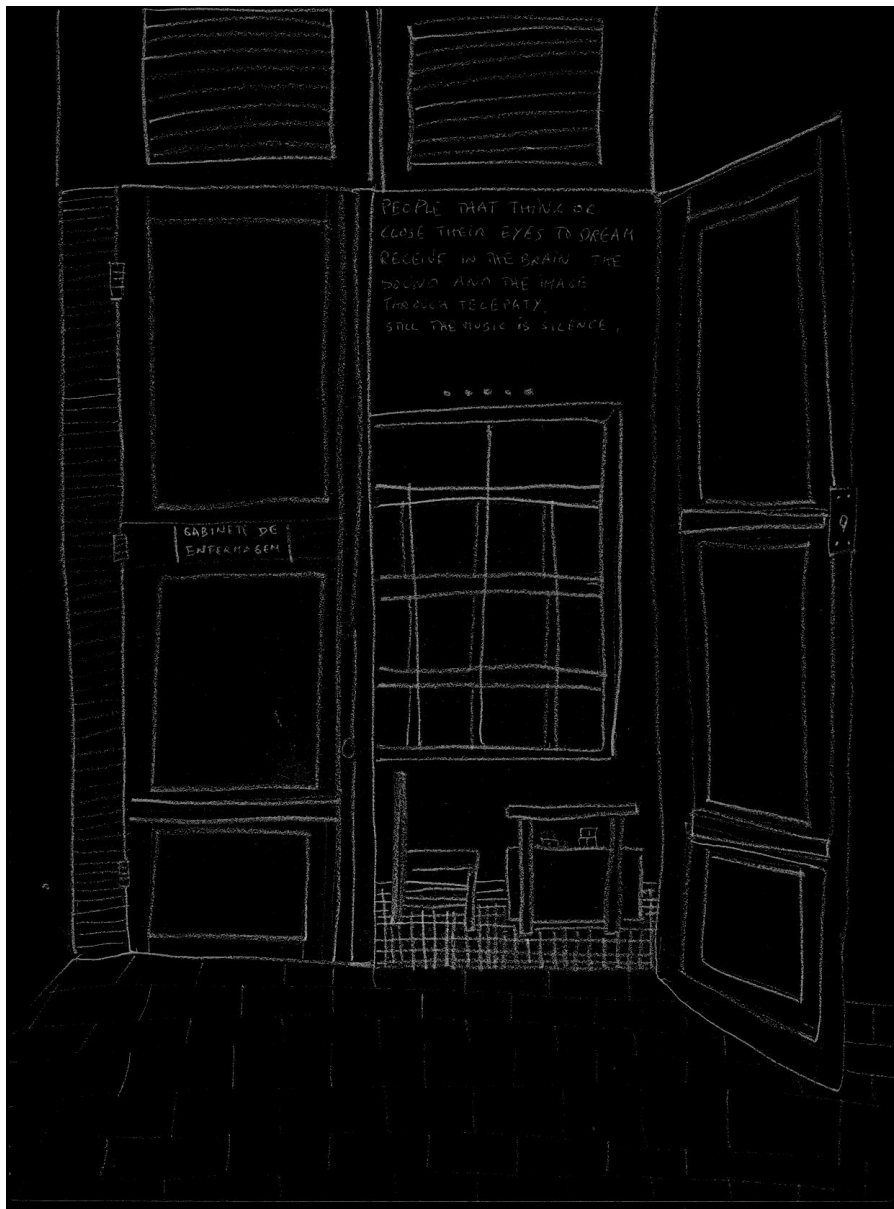 PEOPLE THAT THINK OR
CLOSE THEIR EYES TO DREAM
RECEIVE IN THE BRAIN THE
SOUND AND THE IMAGE
THROUGH TELEPATY,
STILL THE MUSIC IS SILENCE,
GABINETE DE
ENFERMAGEN